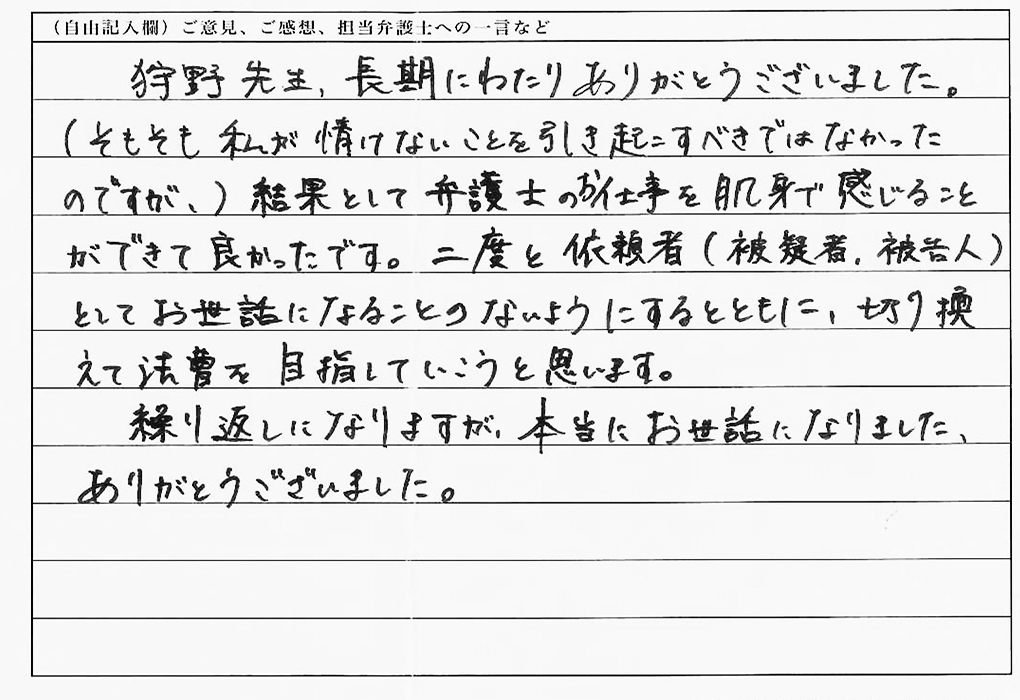 （自由記入欄）ご意見、ご感想、担当弁護士への一言など
狩野先生、長期にわたりありがとうございました。
（そもそも私が情けないことを引き起こすべきではなかった
のですが、）結果として弁護士のお仕事を肌身で感じること
ができて良かったです。二度と依頼者（被疑者、被告人）
としてお世話になることのないようにするとともに、切り換
えて法曹を目指していこうと思います。
繰り返しになりますが、本当にお世話になりました、
ありがとうございました。